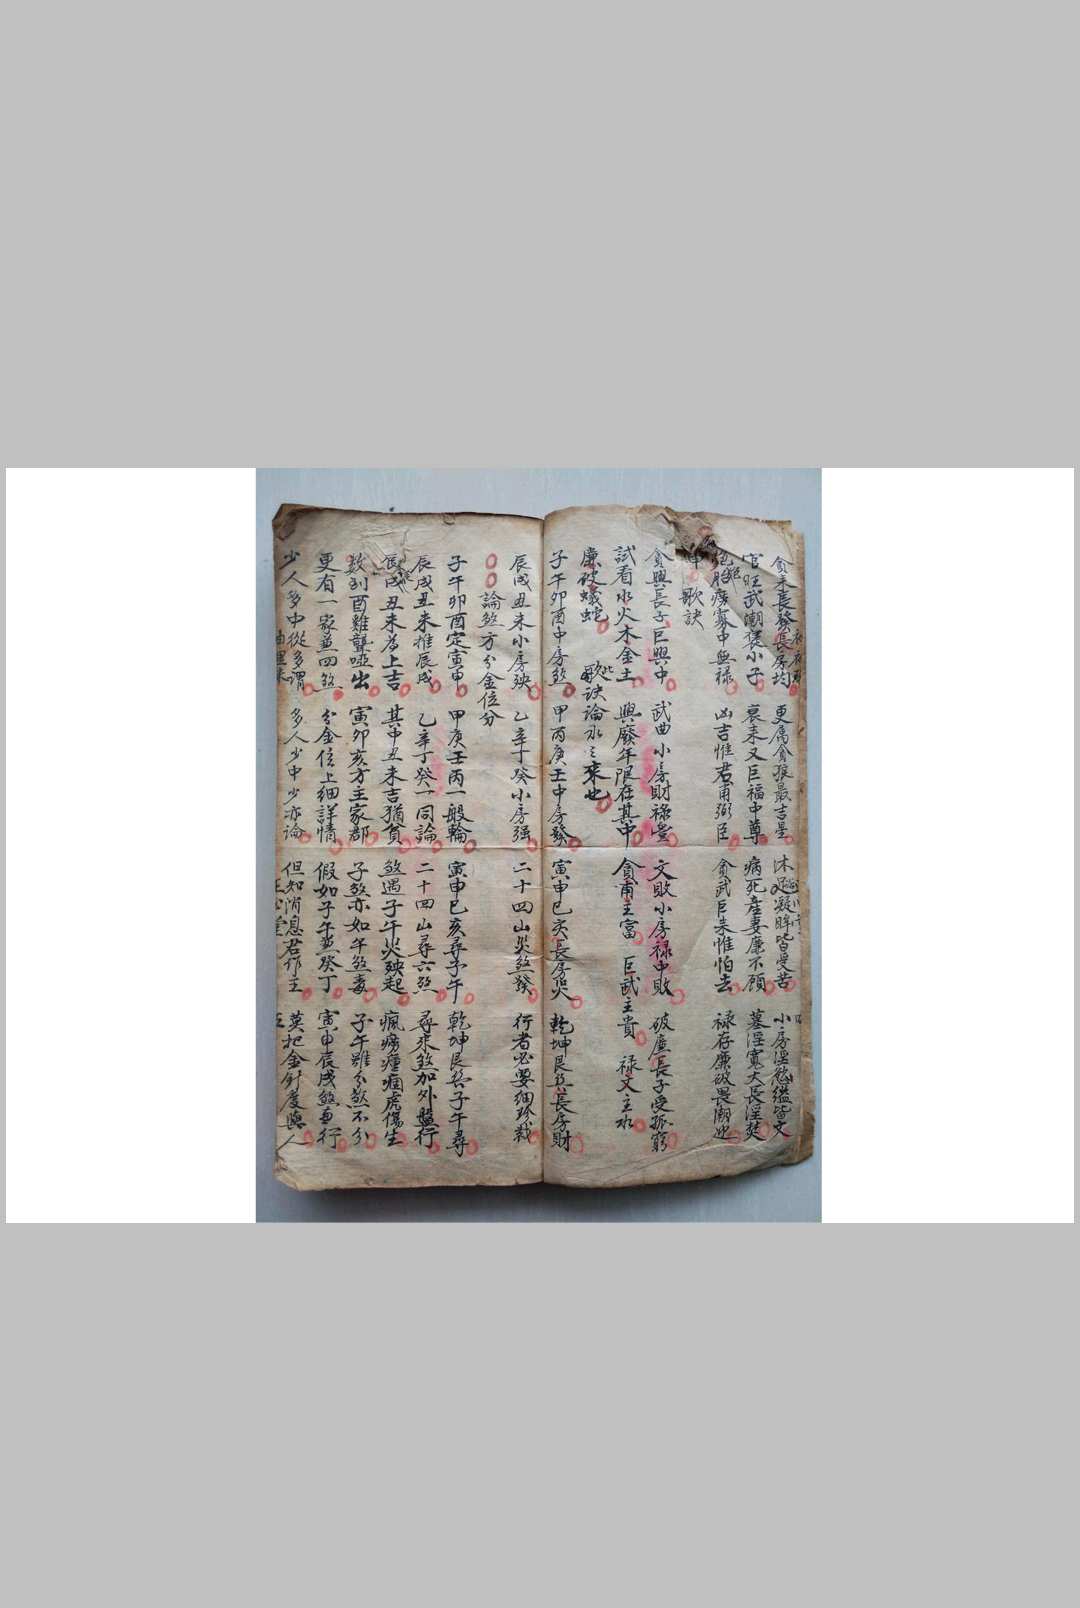 貪未長發長房均 更屬貪狼最吉星 沐 凝眸皆受苦 小房淫慾繼皆文
官旺武潮獲小子 衰未又巨福中尊 病死產妻廉不顧 墓淫寬大長淫焚
絕胎癆寡中無祿 凶吉惟君甫弼臣 貪武巨来惟怕去 祿存廉破畏潮迎
歌訣
貪興長子巨興中 武曲小房財祿豐 文敗小房祿中敗 破廉長子受孤窮
試看水火木金土 興廢年限在其中 貪甫主富 巨武主貴 祿文主水
廉破蟻蛇 此歌訣論水之來也
子午卯酉中房煞 甲丙庚壬中房發 寅申巳亥長房災 乾坤艮巽長房財
辰戌丑未小房殃 乙辛丁癸小房强 二十四山災煞發 行者必要細珍裁
論煞方分金位分
子午卯酉定寅申 甲庚壬丙一般輪 寅申巳亥尋子午 乾坤艮巽子午尋
辰戌丑未推辰戌 乙辛丁癸一同論 二十四山尋六煞 尋來煞加外盤行
辰戌丑未為上吉 其中丑未吉猶貧 煞遇子午災殃起 瘋癆瘇痼虎傷生
數到酉雞聾啞出 寅卯亥方主家郡 子煞亦如午煞毒 子午雖分煞不分
更有一家無四煞 分金位上細詳情 假如子午無癸丁 寅申辰戌煞無行
少人多中從多謂 多人少中少亦論 但知消息君作主 莫把金針度與人